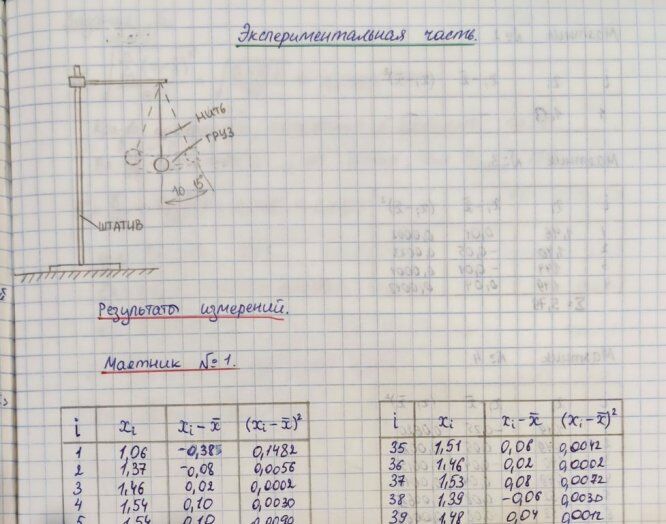 Экспериментальная часть.
НИТЬ
ГРУЗ
10 15°
ШТАТИВ
Результаты измерений.
Маятник №1.
i xᵢ xᵢ-x̄ (xᵢ-x̄)²
1 1,06 -0,385 0,1482
2 1,37 -0,08 0,0056
3 1,46 0,02 0,0002
4 1,54 0,10 0,0030
5 1,54 0,10 0,0090
i xᵢ xᵢ-x̄ (xᵢ-x̄)²
35 1,51 0,06 0,0042
36 1,46 0,02 0,0002
37 1,53 0,08 0,0072
38 1,39 -0,06 0,0030
39 1,48 0,04 0,0012